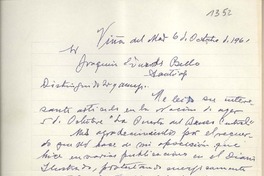 1352
Viña del Mar 6 de Octubre de 1961
Sr
Joaquín Edwards Bello
Santiago
Distinguido amigo:
He leído su interesante artículo en La Nación de ayer
5 de Octubre "La Puerta del Banco Central"
Mis agradecimientos por el recuerdo
que base de mi oposición que
hice en varias publicaciones en el Diario
Ilustrado, protestando energicamente